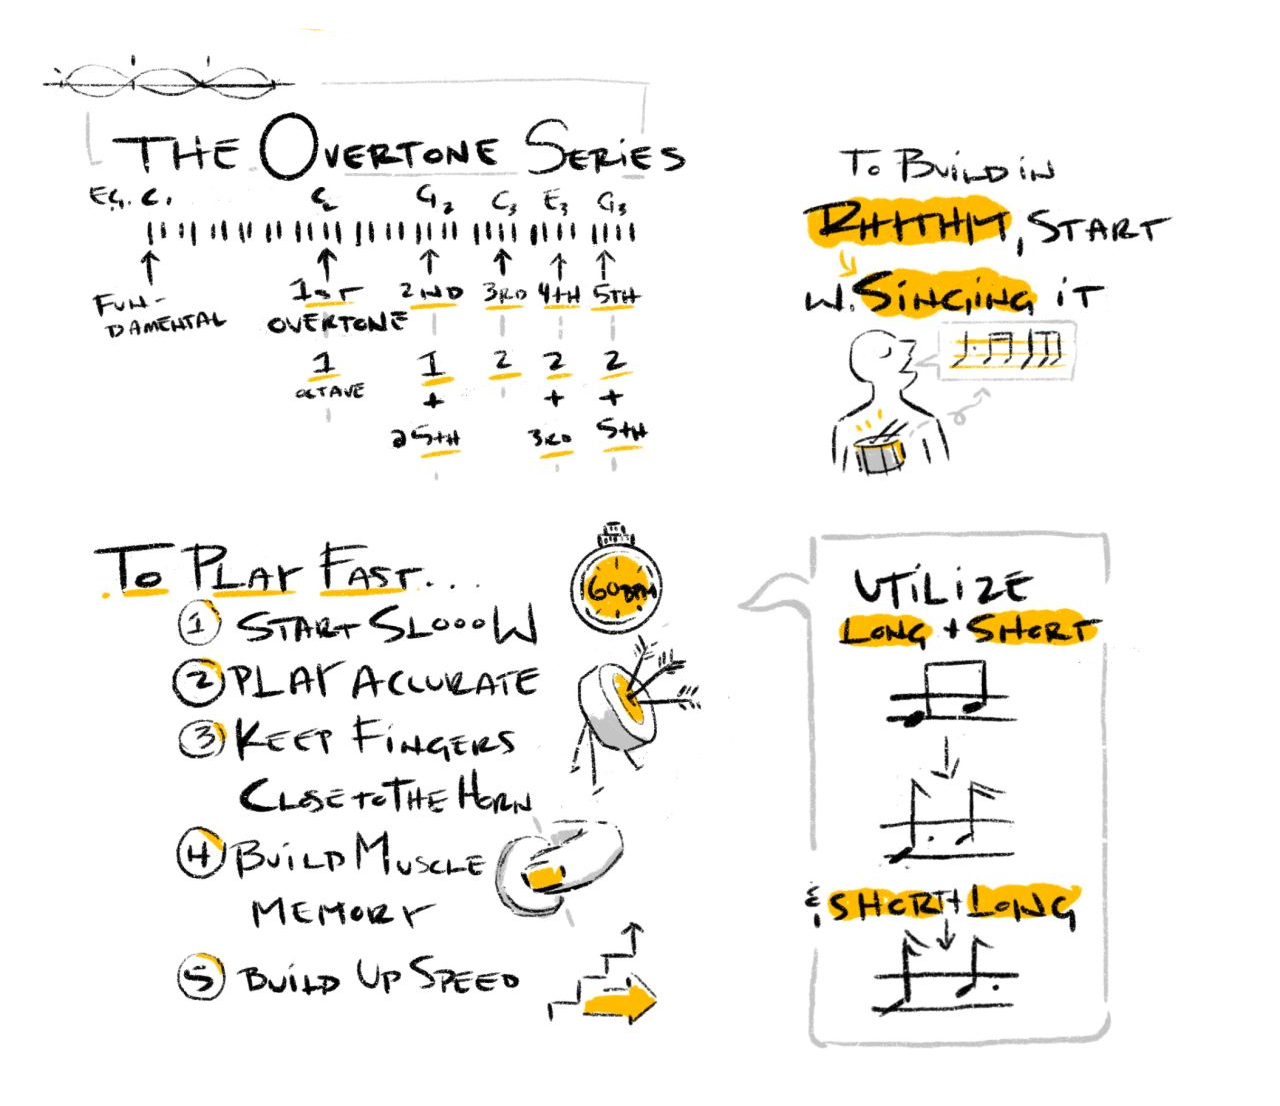 THE OVERTONE SERIES
EG. C1 C2 G2 C3 E3 G3
FUN-
DAMENTAL
1ST 2ND 3RD 4TH 5TH
OVERTONE
1 1 2 2 2
OCTAVE + + +
a 5TH 3RD 5TH
TO BUILD IN
RHYTHM, START
W. SINGING IT
TO PLAY FAST...
1 START SLOOOW
60 BPM
2 PLAY ACCURATE
3 KEEP FINGERS
CLOSE TO THE HORN
4 BUILD MUSCLE
MEMORY
5 BUILD UP SPEED
UTILIZE
LONG + SHORT
& SHORT + LONG